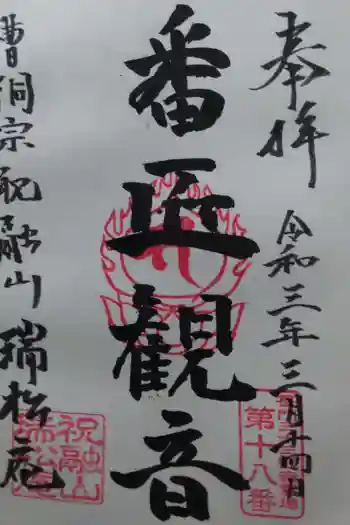 奉拝
令和三年三月廿四日
第十八番
番正観音
曹洞宗祝融山瑞松庵
祝融山
瑞松庵